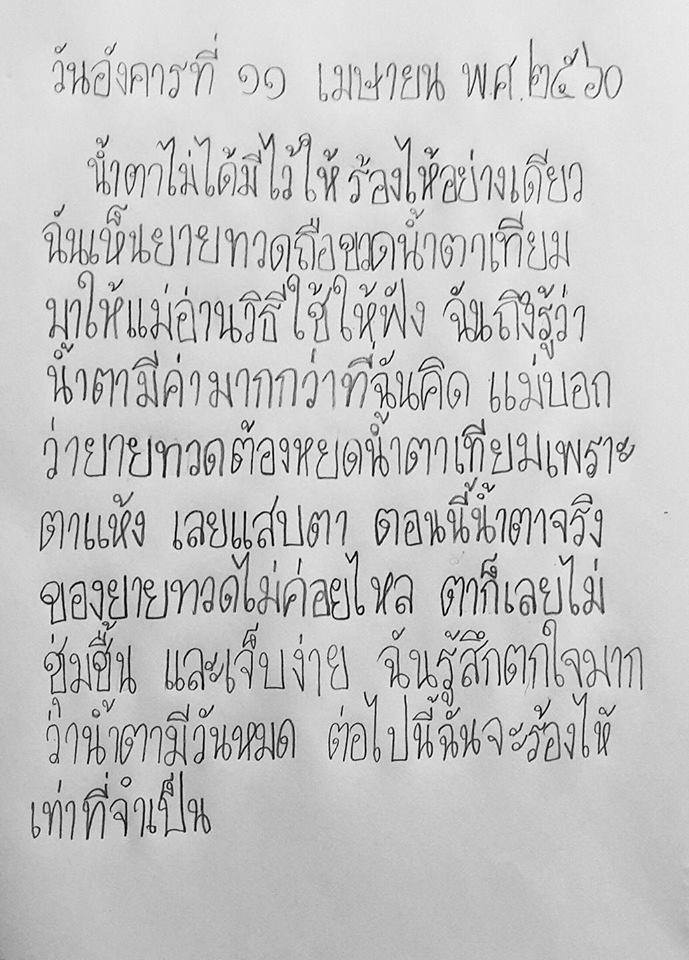 วันอังคารที่ ๑๑ เมษายน พ.ศ.๒๕๖๐
น้ำตาไม่ได้มีไว้ให้ร้องไห้อย่างเดียว
ฉันเห็นยายทวดถือขวดน้ำตาเทียม
มาให้แม่อ่านวิธีใช้ให้ฟัง ฉันถึงรู้ว่า
น้ำตามีค่ามากกว่าที่ฉันคิด แม่บอก
ว่ายายทวดต้องหยดน้ำตาเทียมเพราะ
ตาแห้ง เลยแสบตา ตอนนี้น้ำตาจริง
ของยายทวดไม่ค่อยไหล ตาก็เลยไม่
ชุ่มชื้น และเจ็บง่าย ฉันรู้สึกตกใจมาก
ว่าน้ำตามีวันหมด ต่อไปนี้ฉันจะร้องไห้
เท่าที่จำเป็น